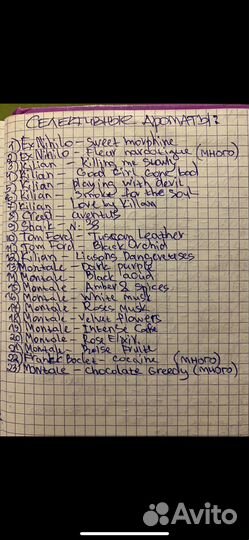 СЕЛЕКТИВНЫЕ АРОМАТЫ:
1) Ex Nihilo - Sweet morphine
2) Ex Nihilo - Fleur narcotique (много)
3) Kilian - Killing me slowly
4) Kilian - Good girl gone bad
5) Kilian - playing with devil
6) Kilian - Smoke for the soul
7) Kilian - Love by Kilian
8) Creed - aventus
9) Shaik - N: 33
10) Tom Ford - Tuscan Leather
11) Tom Ford - Black Orchid
12) Kilian - Liasons Dangereuses
13) Montale - Dark purple
14) Montale - Black aoud
15) Montale - Amber & Spices
16) Montale - White musk
17) Montale - Roses Musk
18) Montale - Velvet flowers
19) Montale - Intense Cafe
20) Montale - Rose Elixir
21) Montale - Boise Fruite
22) Franck Boclet - Cocaine (много)
23) Montale - Chocolate Greedy (много)
Avito